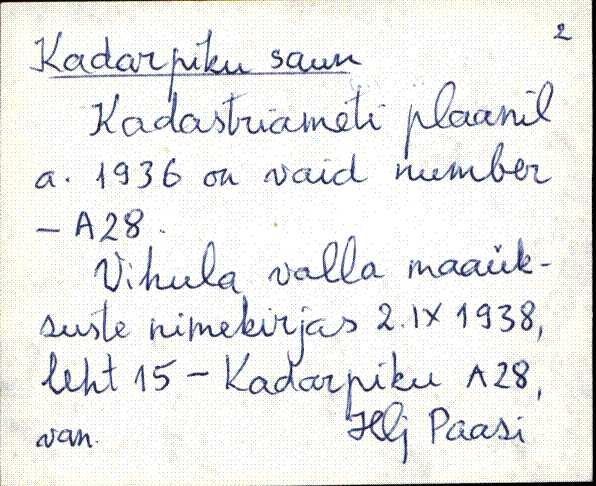 2
Kadarpiku saun
Kadastriameti plaanil
a. 1936 on vaid number
– A28.
Vihula valla maaük-
suste nimekirjas 2.IX 1938,
leht 15 – Kadarpiku A28,
van.
Hlj Paasi